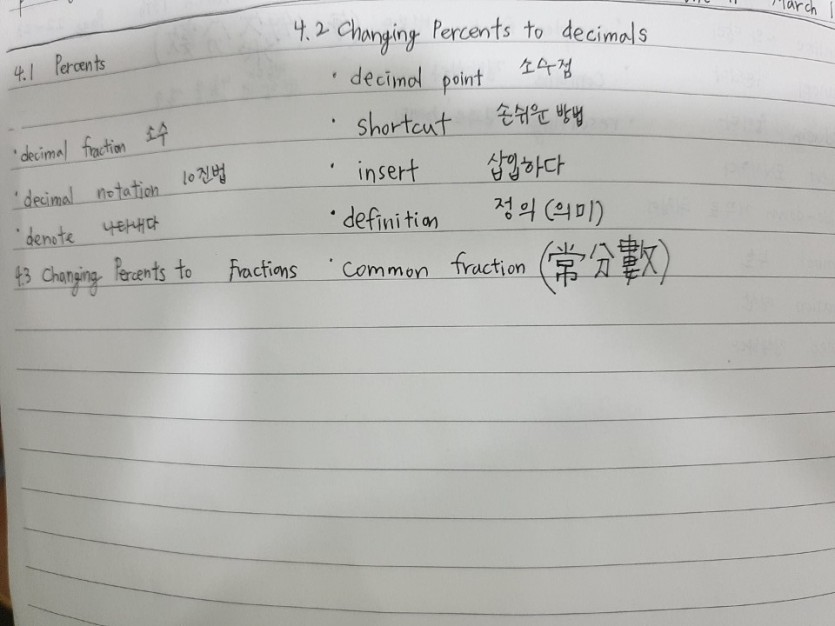 March 1
4.2 Changing Percents to decimals
4.1 Percents
· decimal point 소수점
· shortcut 손쉬운 방법
· decimal fraction 소수
· insert 삽입하다
· decimal notation 10진법
· definition 정의(의미)
· denote 나타내다
4.3 Changing Percents to Fractions · common fraction (常分數)